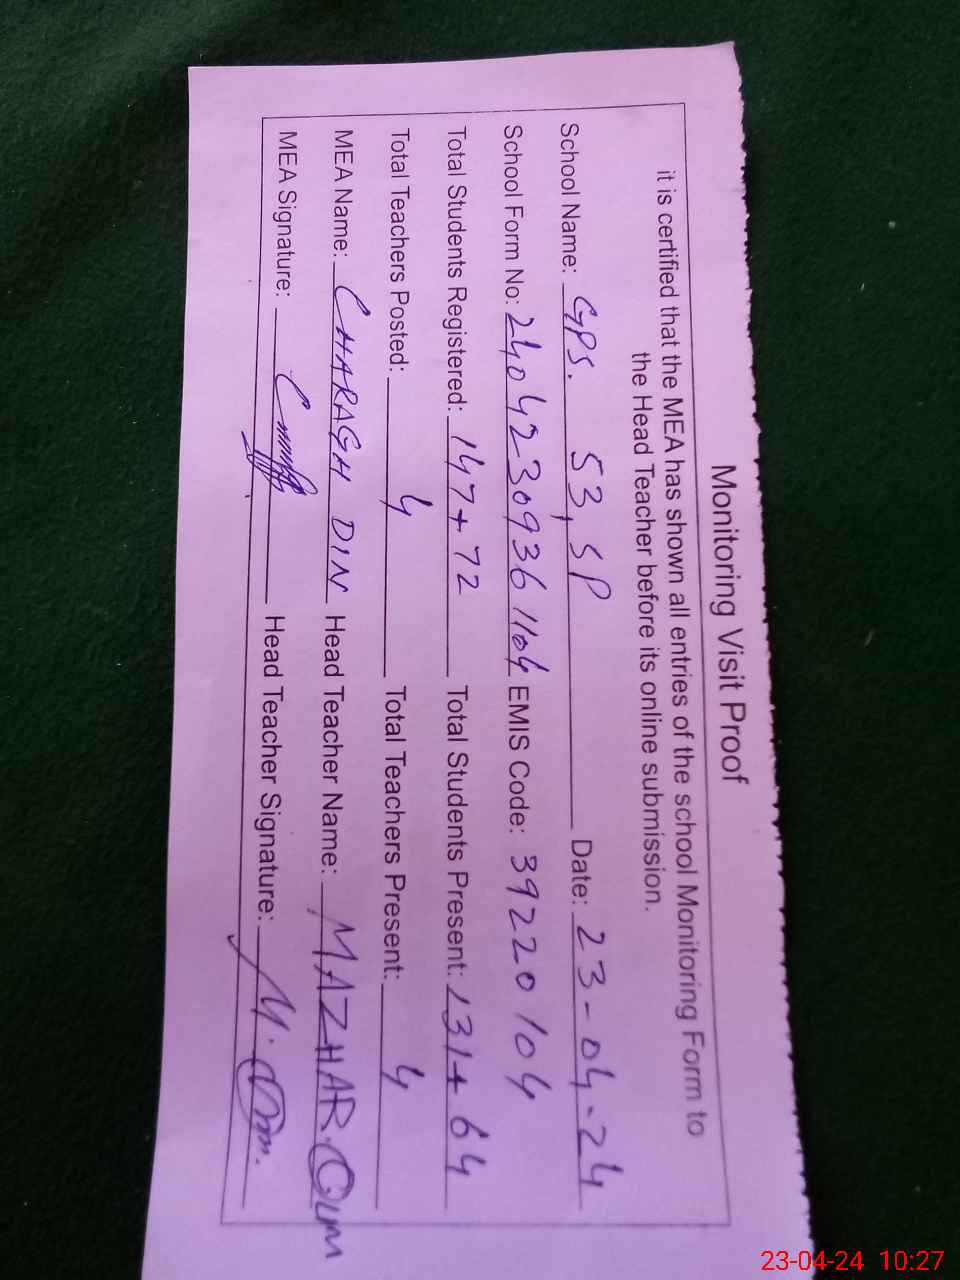 Monitoring Visit Proof
it is certified that the MEA has shown all entries of the school Monitoring Form to
the Head Teacher before its online submission.
School Name: GPS. 53, SP Date: 23-04-24
School Form No: 24042309361104 EMIS Code: 39220104
Total Students Registered: 147+72 Total Students Present: 131+64
Total Teachers Posted: 4 Total Teachers Present: 4
MEA Name: CHARAGH DIN Head Teacher Name: MAZHAR
MEA Signature: Head Teacher Signature: M.
23-04-24 10:27